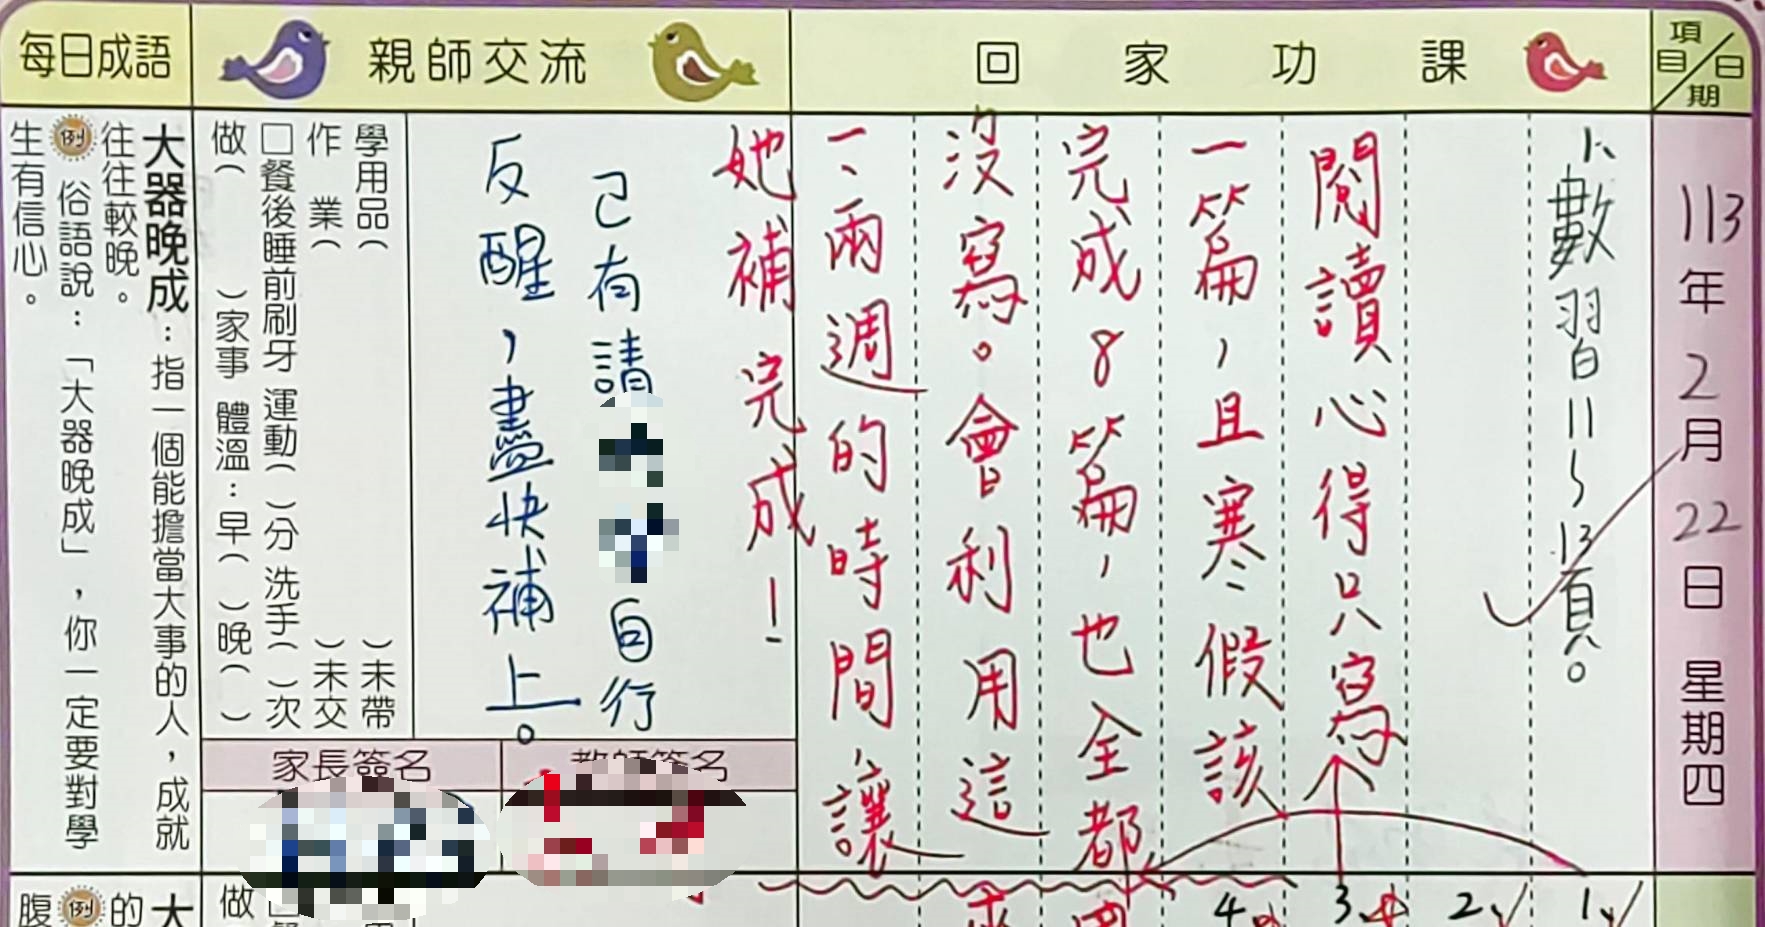 項目/日期
回家功課
親師交流
每日成語
113年2月22日 星期四
1、數習11~13頁。
閱讀心得只寫
一篇，且寒假該
完成8篇，也全都
沒寫。會利用這
一、兩週的時間，讓
她補完成！
已有請 自行
反醒，盡快補上。
學用品（ ）未帶
作業（ ）未交
□餐後睡前刷牙 運動（ ）分 洗手（ ）次
做（ ）家事 體溫：早（ ）晚（ ）
家長簽名
教師簽名
大器晚成：指一個能擔當大事的人，成就
往往較晚。
例 俗語說：「大器晚成」，你一定要對學
生有信心。
1、
2、
3、
4、
做
大
的
例
腹